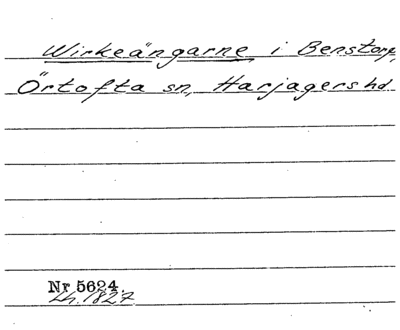 Wirkeängarne i Benstorp,
Örtofta sn, Harjagers hd
Nr 5624.
Lh. 1827